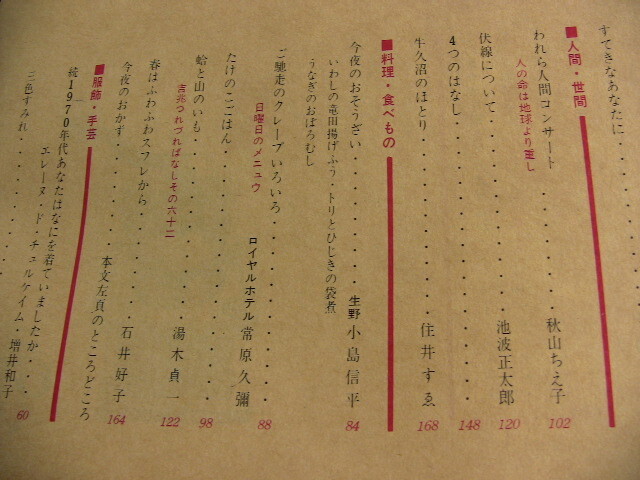 すてきなあなたに・・・・・・・・・・・・・・・
■人間・世間
人の命は地球より重し
われら人間コンサート・・・・・・秋山ちえ子 102
伏線について・・・・・・・・・・池波正太郎 120
4つのはなし・・・・・・・・・・・・・・・148
牛久沼のほとり・・・・・・・・・・住井すゑ 168
■料理・食べもの
今夜のおそうざい・・・・・・・・生野 小島信平 84
いわしの竜田揚げふう・トリとひじきの袋煮
うなぎのおぼろむし
ご馳走のクレープいろいろ・・・・・・・・・88
日曜日のメニュウ
たけのこごはん・・・・・・ロイヤルホテル 常原久彌
蛤と山のいも・・・・・・・・・・・・・・98
吉兆つれづればなしその六十二
湯木貞一 122
春はふわふわスフレから・・・・・・石井好子 164
今夜のおかず・・・・・・本文左頁のところどころ
■服飾・手芸
続1970年代あなたはなにを着ていましたか・・・・
エレーヌ・ド・チュルケイム・増井和子 60
三色すみれ・・・・・・・・・・・・